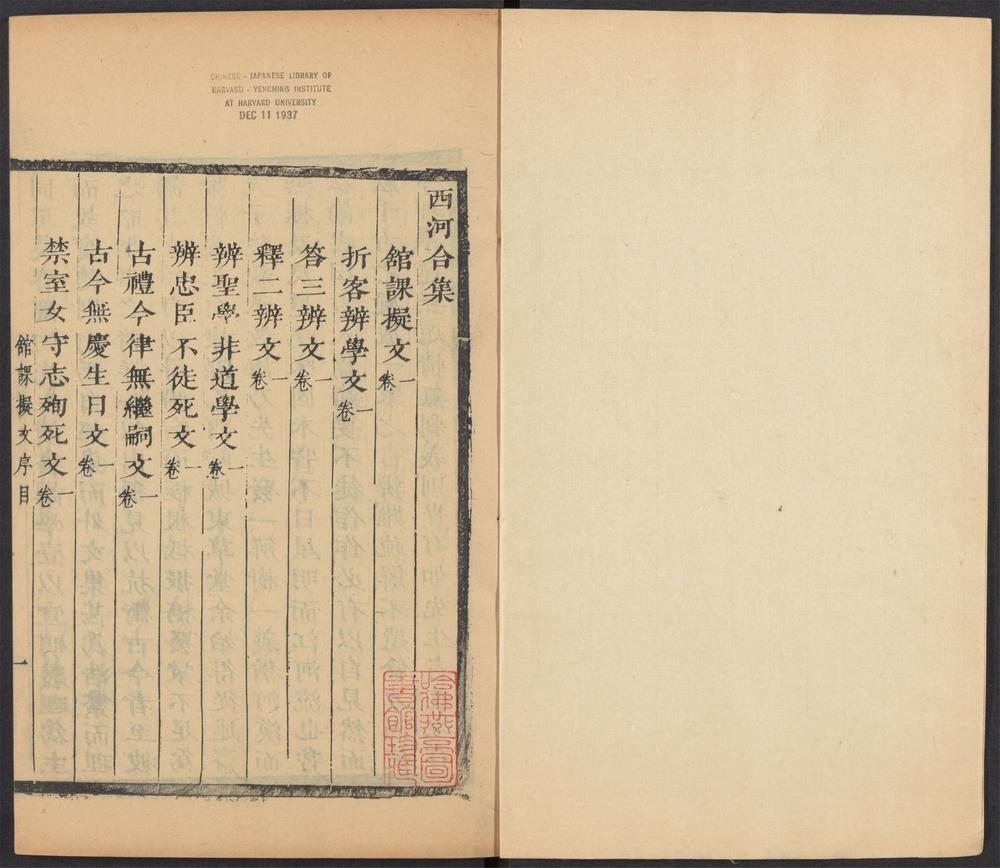 CHINESE - JAPANESE LIBRARY OF
HARVARD - YENCHING INSTITUTE
AT HARVARD UNIVERSITY
DEC 11 1937
西河合集
館課擬文一卷
折客辨學文一卷
答三辨文一卷
釋二辨文一卷
辨聖學非道學文一卷
辨忠臣不徒死文一卷
古禮今律無繼嗣文一卷
古今無慶生日文一卷
禁室女守志殉死文一卷
館課擬文序目
一
哈佛燕京圖
書館珍藏